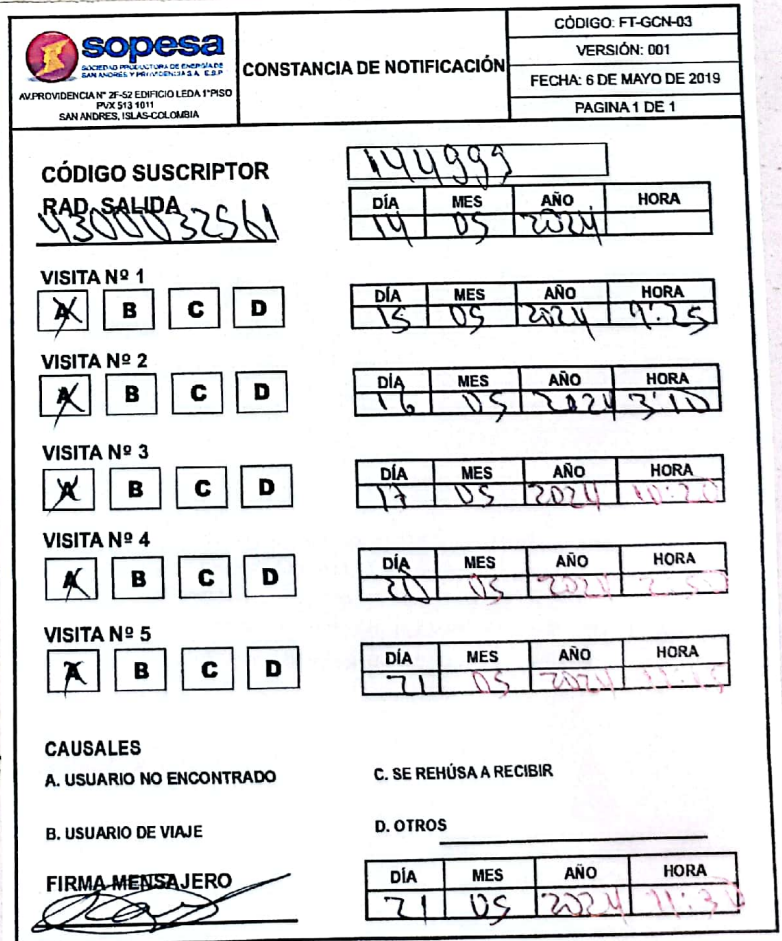 sopesa
SOCIEDAD PRODUCTORA DE ENERGÍA DE
SAN ANDRES Y PROVIDENCIA S.A. E.S.P
AV.PROVIDENCIA N° 2F-52 EDIFICIO LEDA 1°PISO
PVX 513 1011
SAN ANDRES, ISLAS-COLOMBIA
CONSTANCIA DE NOTIFICACIÓN
CÓDIGO: FT-GCN-03
VERSIÓN: 001
FECHA: 6 DE MAYO DE 2019
PAGINA 1 DE 1
CÓDIGO SUSCRIPTOR 144999
RAD. SALIDA DÍA MES AÑO HORA
43000032561 14 05 2024
VISITA Nº 1
DÍA MES AÑO HORA
A B C D 15 05 2024 9:25
VISITA Nº 2
DÍA MES AÑO HORA
A B C D 16 05 2024 3:10
VISITA Nº 3
DÍA MES AÑO HORA
A B C D 17 05 2024 10:20
VISITA Nº 4
DÍA MES AÑO HORA
A B C D 20 05 2024 2:50
VISITA Nº 5
DÍA MES AÑO HORA
A B C D 21 05 2024 11:15
CAUSALES
A. USUARIO NO ENCONTRADO C. SE REHÚSA A RECIBIR
B. USUARIO DE VIAJE D. OTROS
FIRMA MENSAJERO DÍA MES AÑO HORA
21 05 2024 11:30